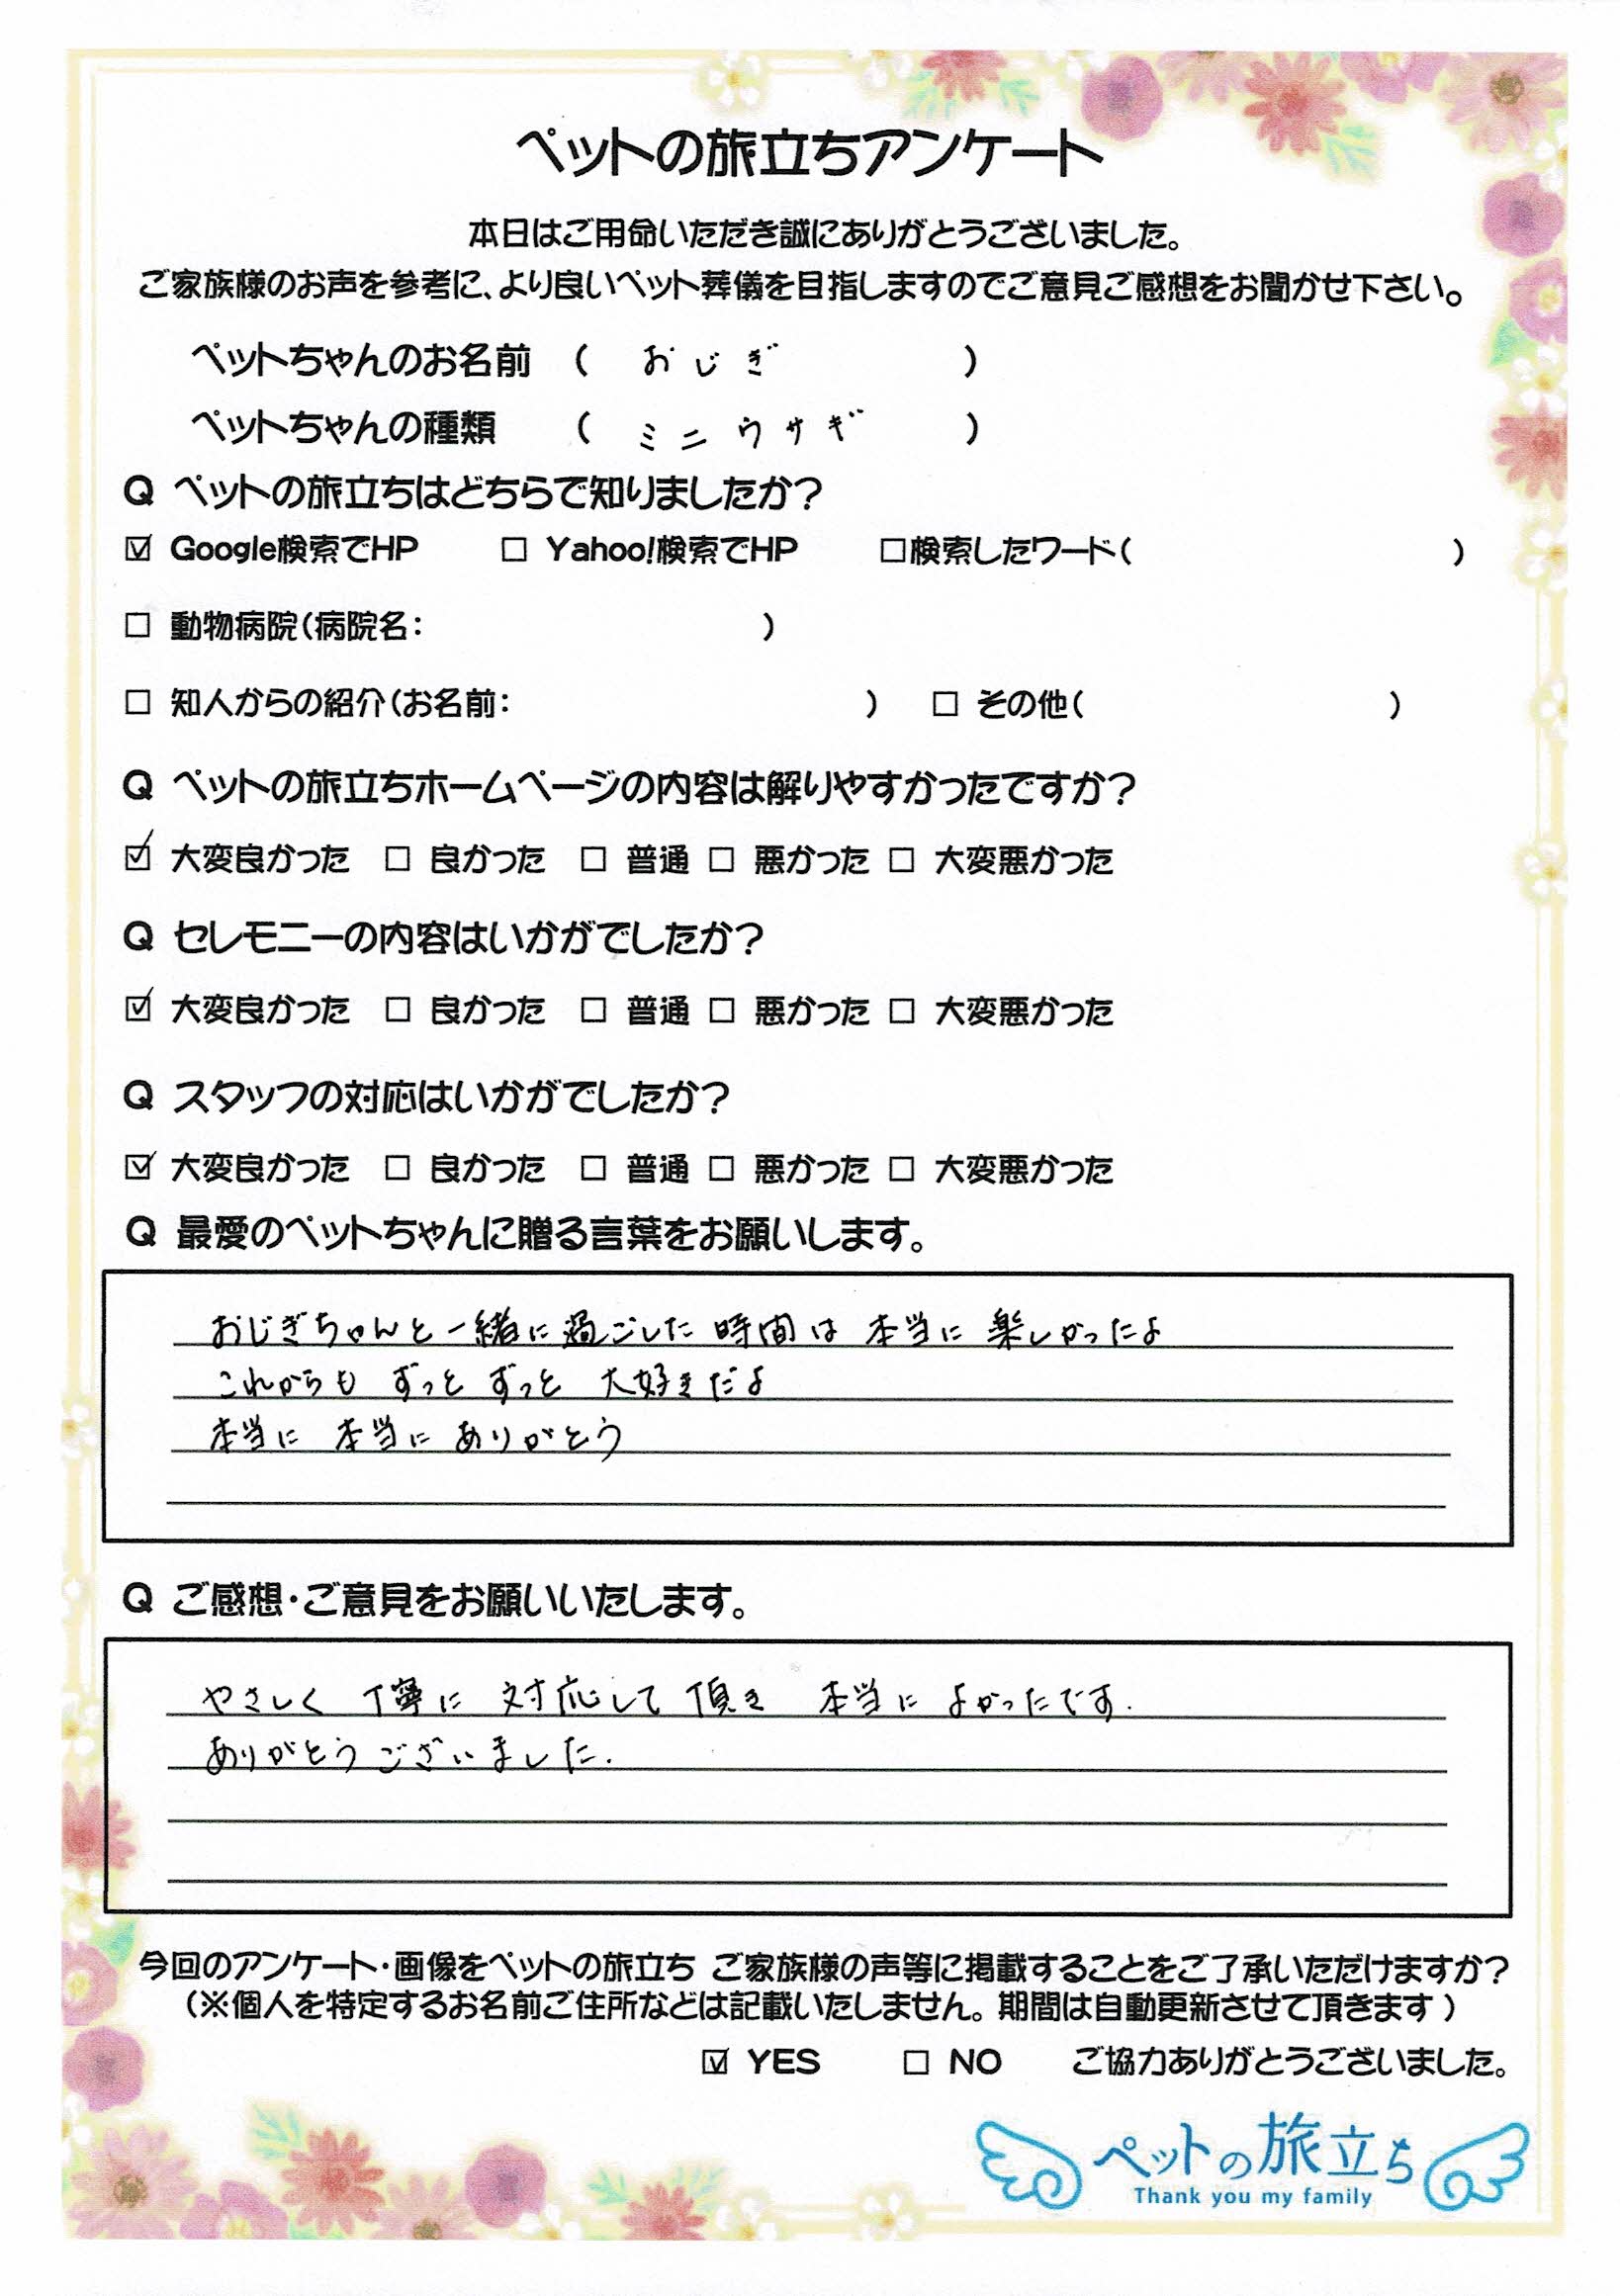 ペットの旅立ちアンケート
本日はご用命いただき誠にありがとうございました。
ご家族様のお声を参考に、より良いペット葬儀を目指しますのでご意見ご感想をお聞かせ下さい。
ペットちゃんのお名前 ( おじぎ )
ペットちゃんの種類 ( ミニウサギ )
Q ペットの旅立ちはどちらで知りましたか?
☑ Google検索でHP □ Yahoo!検索でHP □検索したワード( )
□ 動物病院(病院名: )
□ 知人からの紹介(お名前: ) □ その他( )
Q ペットの旅立ちホームページの内容は解りやすかったですか?
☑ 大変良かった □ 良かった □ 普通 □ 悪かった □ 大変悪かった
Q セレモニーの内容はいかがでしたか?
☑ 大変良かった □ 良かった □ 普通 □ 悪かった □ 大変悪かった
Q スタッフの対応はいかがでしたか?
☑ 大変良かった □ 良かった □ 普通 □ 悪かった □ 大変悪かった
Q 最愛のペットちゃんに贈る言葉をお願いします。
おじぎちゃんと一緒に過ごした 時間は 本当に 楽しかったよ
これからも ずっと ずっと 大好きだよ
本当に 本当に ありがとう
Q ご感想・ご意見をお願いいたします。
やさしく 丁寧に 対応して 頂き 本当に よかったです.
ありがとうございました.
今回のアンケート・画像をペットの旅立ち ご家族様の声等に掲載することをご了承いただけますか?
(※個人を特定するお名前ご住所などは記載いたしません。期間は自動更新させて頂きます)
☑ YES □ NO ご協力ありがとうございました。
ペットの旅立ち
Thank you my family